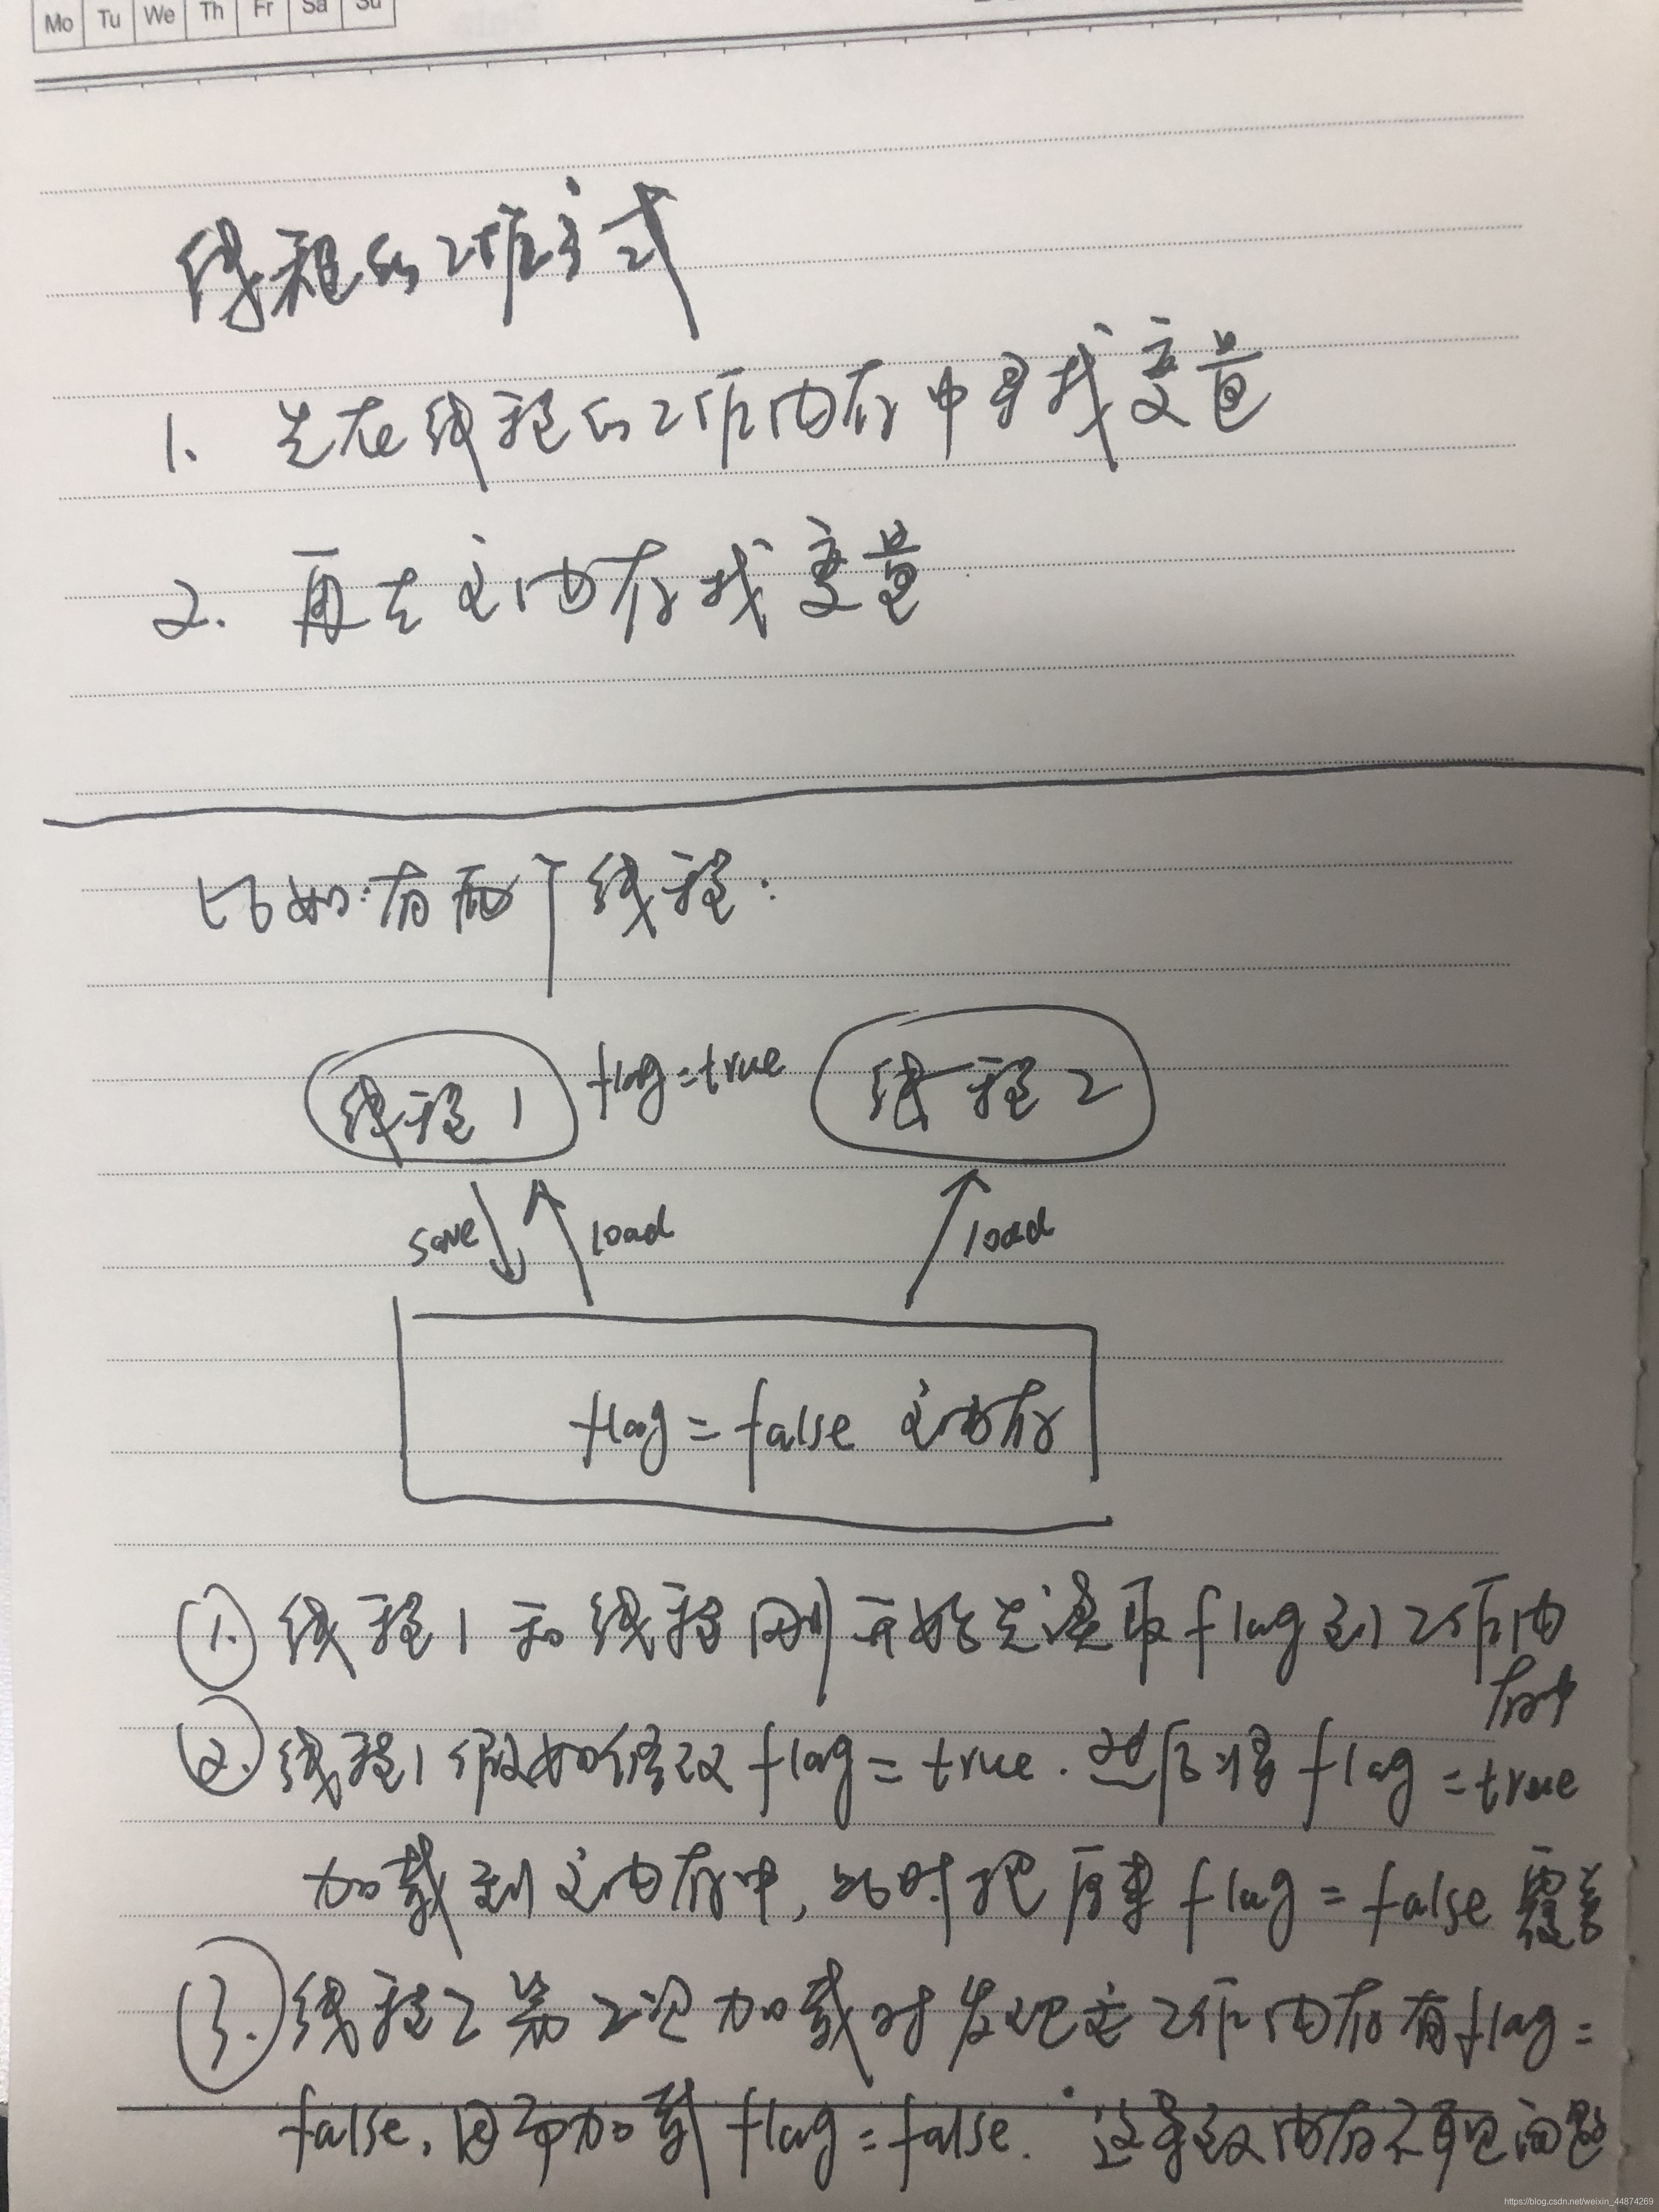 Mo Tu We Th Fr Sa Su
线程的工作方式
1. 先在线程的工作内存中寻找变量
2. 再去主内存找变量
比如:有两个线程:
线程1 flag=true 线程2
save load load
flag=false 主内存
①. 线程1和线程刚开始先读取flag到工作内
存中
②. 线程1假如修改flag=true. 然后将flag=true
加载到主内存中,此时把原来flag=false覆盖
③. 线程2第2次加载时发现主工作内存有flag=
false,因而加载flag=false. 这导致内存不可见问题
https://blog.csdn.net/weixin_44874269